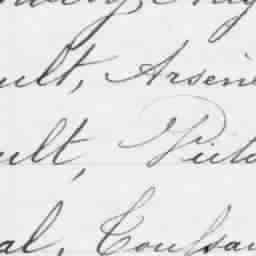 ult, Arsèn
ult, Victo
al, Toussai